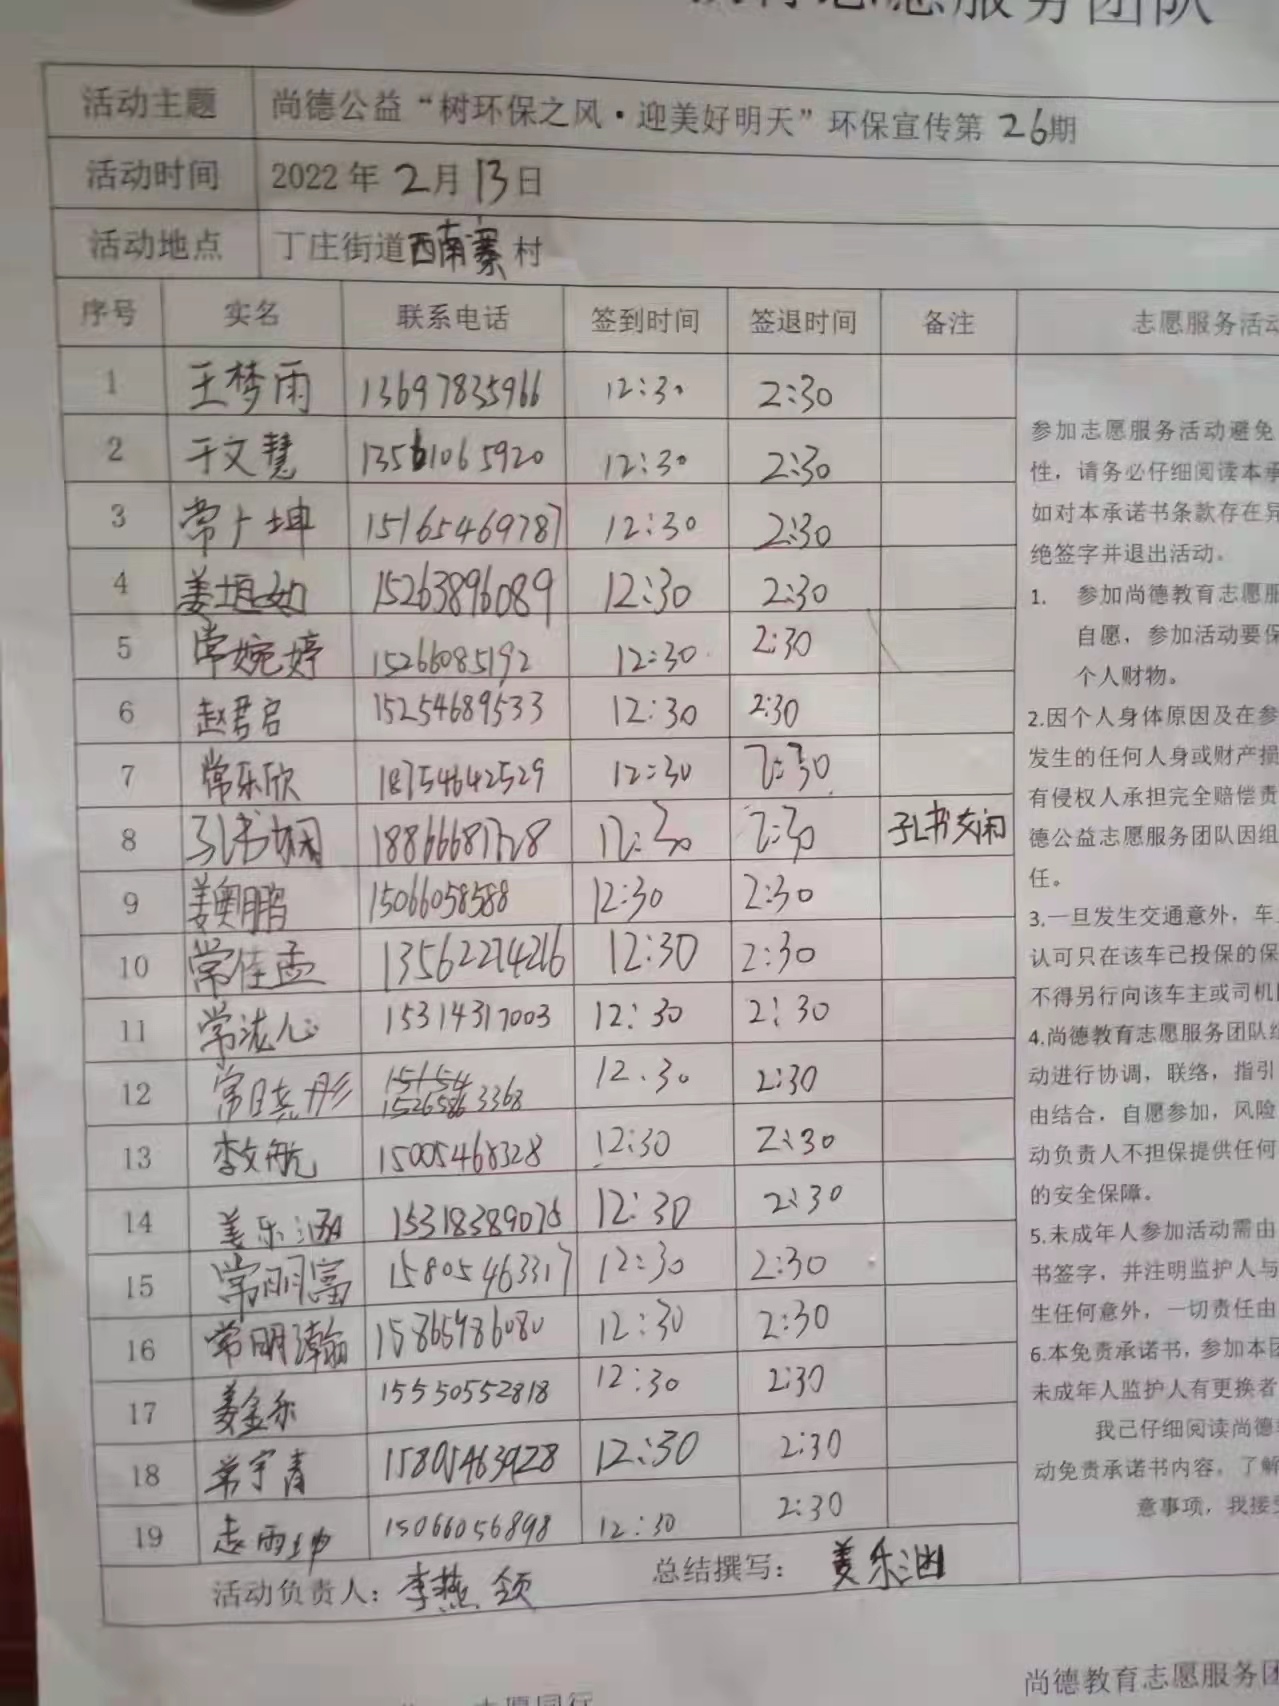 志愿服务团队
活动主题 尚德公益“树环保之风·迎美好明天”环保宣传第 26期
活动时间 2022 年 2月 13日
活动地点 丁庄街道西南寨村
序号 实名 联系电话 签到时间 签退时间 备注 志愿服务活动
1 王梦雨 13697835966 12:30 2:30
2 于文慧 13561065920 12:30 2:30
3 常广坤 15165469787 12:30 2:30
4 姜垣如 15263896089 12:30 2:30
5 常婉婷 15266085192 12:30 2:30
6 赵君启 15254689533 12:30 2:30
7 常乐欣 18754642529 12:30 2:30
8 孔书娴 12:30 2:30 孔书娴
9 姜奥鹏 15066058588 12:30 2:30
10 常佳孟 12:30 2:30
11 15314317003 12:30 2:30
12 常晓彤 12:30 2:30
13 李文航 15005468328 12:30 2:30
14 姜乐涵 15318389076 12:30 2:30
15 常明富 15805463317 12:30 2:30
16 常明瀚 15865986080 12:30 2:30
17 姜金乐 15550552818 12:30 2:30
18 常宇青 15805463928 12:30 2:30
19 15066056898 12:30 2:30
活动负责人：李燕领 总结撰写：姜乐涵
参加志愿服务活动避免
性，请务必仔细阅读本承
如对本承诺书条款存在异
绝签字并退出活动。
1. 参加尚德教育志愿服
自愿，参加活动要保
个人财物。
2.因个人身体原因及在参
发生的任何人身或财产损
有侵权人承担完全赔偿责
德公益志愿服务团队因组
任。
3.一旦发生交通意外，车
认可只在该车已投保的保
不得另行向该车主或司机
4.尚德教育志愿服务团队组
动进行协调，联络，指引
由结合，自愿参加，风险
动负责人不担保提供任何
的安全保障。
5.未成年人参加活动需由
书签字，并注明监护人与
生任何意外，一切责任由
6.本免责承诺书，参加本团
未成年人监护人有更换者
我已仔细阅读尚德
动免责承诺书内容，了解
意事项，我接受
尚德教育志愿服务团
志愿同行